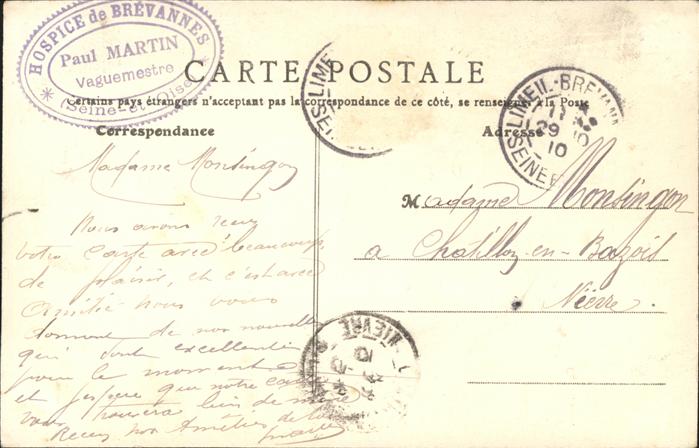 HOSPICE de BRÉVANNES
Paul MARTIN
Vaguemestre
* Seine-et-Oise *
CARTE POSTALE
Certains pays étrangers n'acceptent pas la correspondance de ce côté, se renseigner à la Poste
Correspondance
Adresse
LIME
SEI
LIMEIL-BREVANN
29 10
10
SEINE
Madame Monsingon
Nous avons reçu
votre carte avec beaucoup
de plaisir, et c'est avec
Amitié nous vous
donnont de nos nouvelles
qui sont excellente
pour le moment
et j'espère que notre
vous trouvera bien de même
Recevez nos Amitiés de
Madame Monsingon
a Chatillon-en-Bazois
Nièvre
NIEVRE